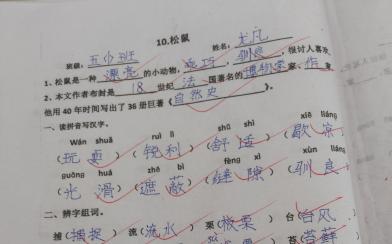 10.松鼠
班级：五(1)班 姓名：
1、松鼠是一种 漂亮 的小动物，乖巧，驯良，很讨人喜欢
2、本文作者布封是 18 世纪 法 国著名的博物学家、作家
他用 40 年时间写出了 36 册巨著《自然史》
一、读拼音写汉字。
Wán shuǎ ruì lì shū shì xiē liáng
(玩耍) (锐利) (舒适) (歇凉)
guāng huá zhē bì fèng xì xùn liáng
(光滑) (遮蔽) (缝隙) (驯良)
二、辨字组词。
捕(捕捉) 流(流水) 栗(板栗) 台(台风)